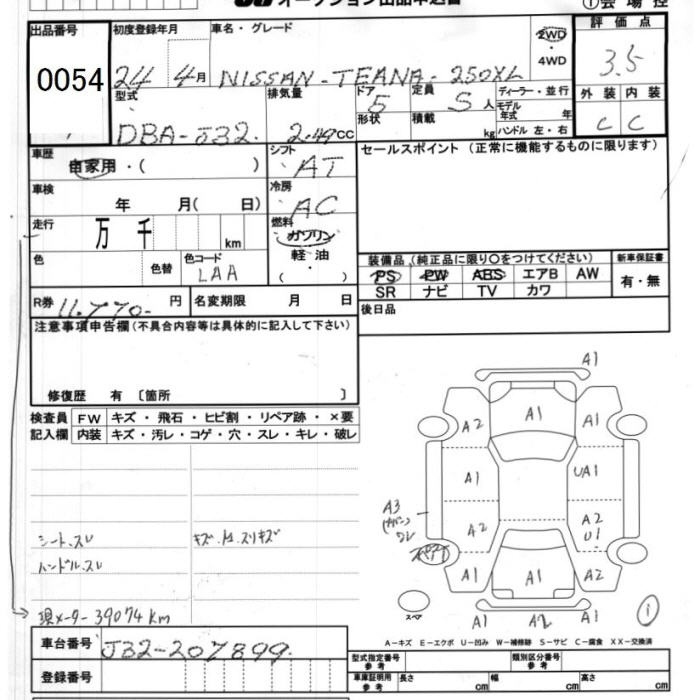 オークション出品申込書 ①会場控
出品番号 初度登録年月 車名・グレード 評価点
0054 24 4月 NISSAN-TEANA-250XL 2WD・4WD 3.5
型式 排気量 ドア 5 定員 5人 ディーラー・並行 外装 内装
形状 積載 kg モデル年式 年 C C
DBA-J32. 2.49CC ハンドル 左・右
車歴 自家用・( ) シフト AT セールスポイント (正常に機能するものに限ります)
車検 年 月( 日) 冷房 AC
走行 万 千 km 燃料 ガソリン
軽・油
( )
色 色替 色コード LAA 装備品 (純正品に限り〇をつけてください) 新車保証書
PS PW ABS エアB AW 有・無
SR ナビ TV カワ
R券 11.770- 円 名変期限 月 日 後日品
注意事項申告欄(不具合内容等は具体的に記入して下さい)
修復歴 有 〔箇所 〕
検査員 FW キズ・飛石・ヒビ割・リペア跡・×要
記入欄 内装 キズ・汚レ・コゲ・穴・スレ・キレ・破レ
A1
A2 A1 A1
A1 UA1
A3
A2 A2
U1
A1 A1 A2
スペア
A1 A2 A1
①
シート.スレ
ハンドル.スレ
現メーター 39074km
A-キズ E-エクボ U-凹み W-補修跡 S-サビ C-腐食 XX-交換済
車台番号 J32-207899.
登録番号
型式指定番号 参考 類別区分番号 参考
車庫証明用 参考 長さ cm 幅 cm 高さ cm